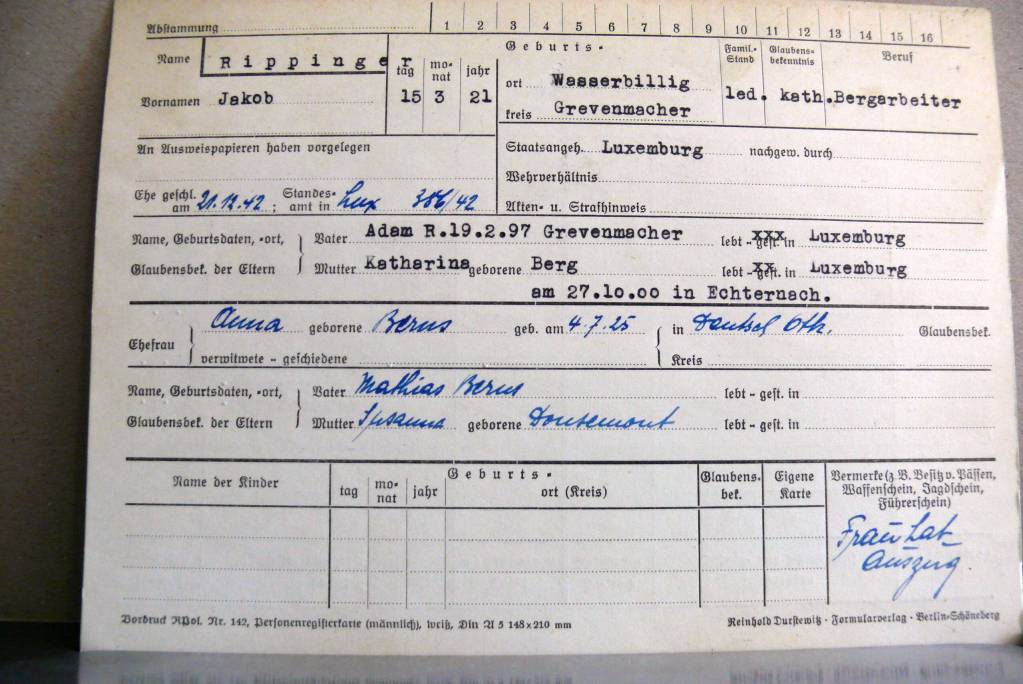 Abstammung 1 2 3 4 5 6 7 8 9 10 11 12 13 14 15 16
Name Rippinger
Vornamen Jakob
tag monat jahr
15 3 21
Geburts-
ort Wasserbillig
kreis Grevenmacher
Famil.-Stand
led.
Glaubensbekenntnis
kath.
Beruf
Bergarbeiter
An Ausweispapieren haben vorgelegen
Staatsangeh. Luxemburg nachgew. durch
Wehrverhältnis
Ehe geschl. am 21.12.42; Standesamt in Lux 386/42
Akten- u. Strafhinweis
Name, Geburtsdaten, -ort, Vater Adam R.19.2.97 Grevenmacher lebt - gest. in Luxemburg
Glaubensbek. der Eltern Mutter Katharina geborene Berg lebt - gest. in Luxemburg
am 27.10.00 in Echternach.
Ehefrau Anna geborene Berns geb. am 4.7.25 in Deutsch Oth. Glaubensbek.
verwitwete - geschiedene Kreis
Name, Geburtsdaten, -ort, Vater Mathias Berns lebt - gest. in
Glaubensbek. der Eltern Mutter Susanna geborene Donsemont lebt - gest. in
Name der Kinder
Geburts-
tag monat jahr ort (Kreis)
Glaubens.bek.
Eigene Karte
Vermerke (z. B. Besitz v. Pässen,
Waffenschein, Jagdschein,
Führerschein)
Frau hat
Auszug.
Vordruck RPol. Nr. 142, Personenregisterkarte (männlich), weiß, Din A 5 148x210 mm
Reinhold Durstewitz · Formularverlag · Berlin-Schöneberg